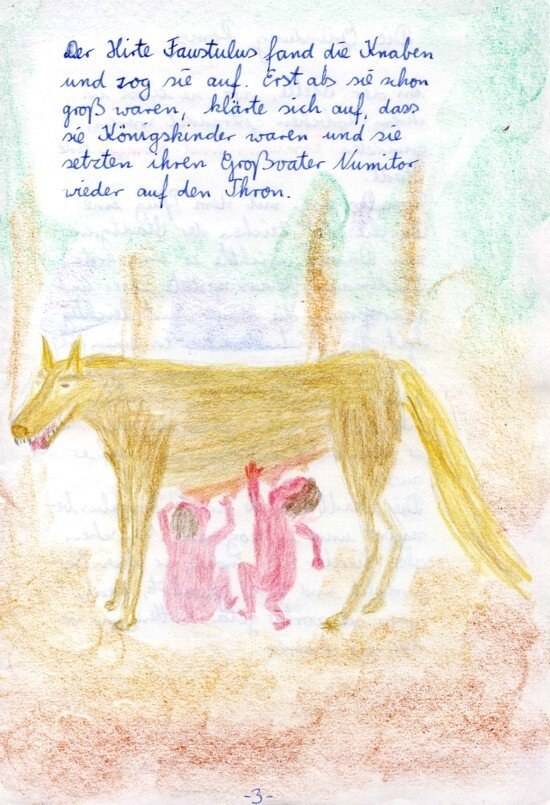 Der Hirte Faustulus fand die Knaben
und zog sie auf. Erst als sie schon
groß waren, klärte sich auf, dass
sie Königskinder waren und sie
setzten ihren Großvater Numitor
wieder auf den Thron.
-3-